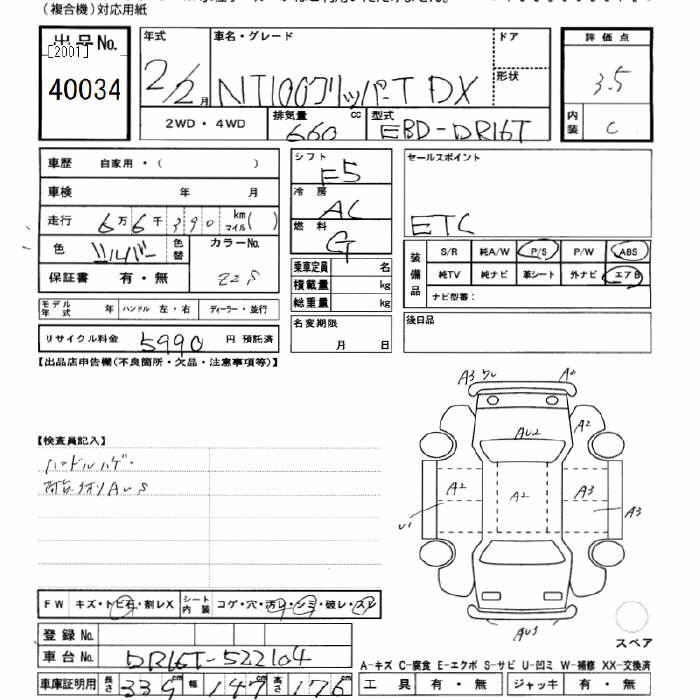 (複合機)対応用紙
出品No.
[2001]
40034
年式
2/2月
車名・グレード
NT100クリッパーT DX
ドア
形状
評価点
3.5
内装
C
2WD・4WD
排気量 cc
660
型式
EBD-DR16T
車歴 自家用・( )
車検 年 月
走行 6万6千390 km マイル( )
色 シルバー 色替 カラーNo.
保証書 有・無 Z2S
モデル年式 年 ハンドル 左・右 ディーラー・並行
リサイクル料金 5990 円 預託済
シフト
F5
冷房
AC
燃料
G
乗車定員 名
積載量 kg
総重量 kg
名変期限
月 日
セールスポイント
ETC
装備品
S/R 純A/W P/S P/W ABS
純TV 純ナビ 革シート 外ナビ エアB
ナビ型番:
後日品
【出品店申告欄(不良箇所・欠品・注意事項等)】
【検査員記入】
ハンドルハゲ・
荷台 AUS
A3
A2
AU2
A2
A2
A3
A3
U1
AU3
スペア
FW キズ・トビ石・割レX シート内装 コゲ・穴・汚レ・シミ・破レ・スレ
登録No.
車台No. DR16T-522104
車庫証明用 長さ 339cm 幅 147cm 高さ 176cm
A-キズ C-腐食 E-エクボ S-サビ U-凹ミ W-補修 XX-交換済
工具 有・無 ジャッキ 有・無